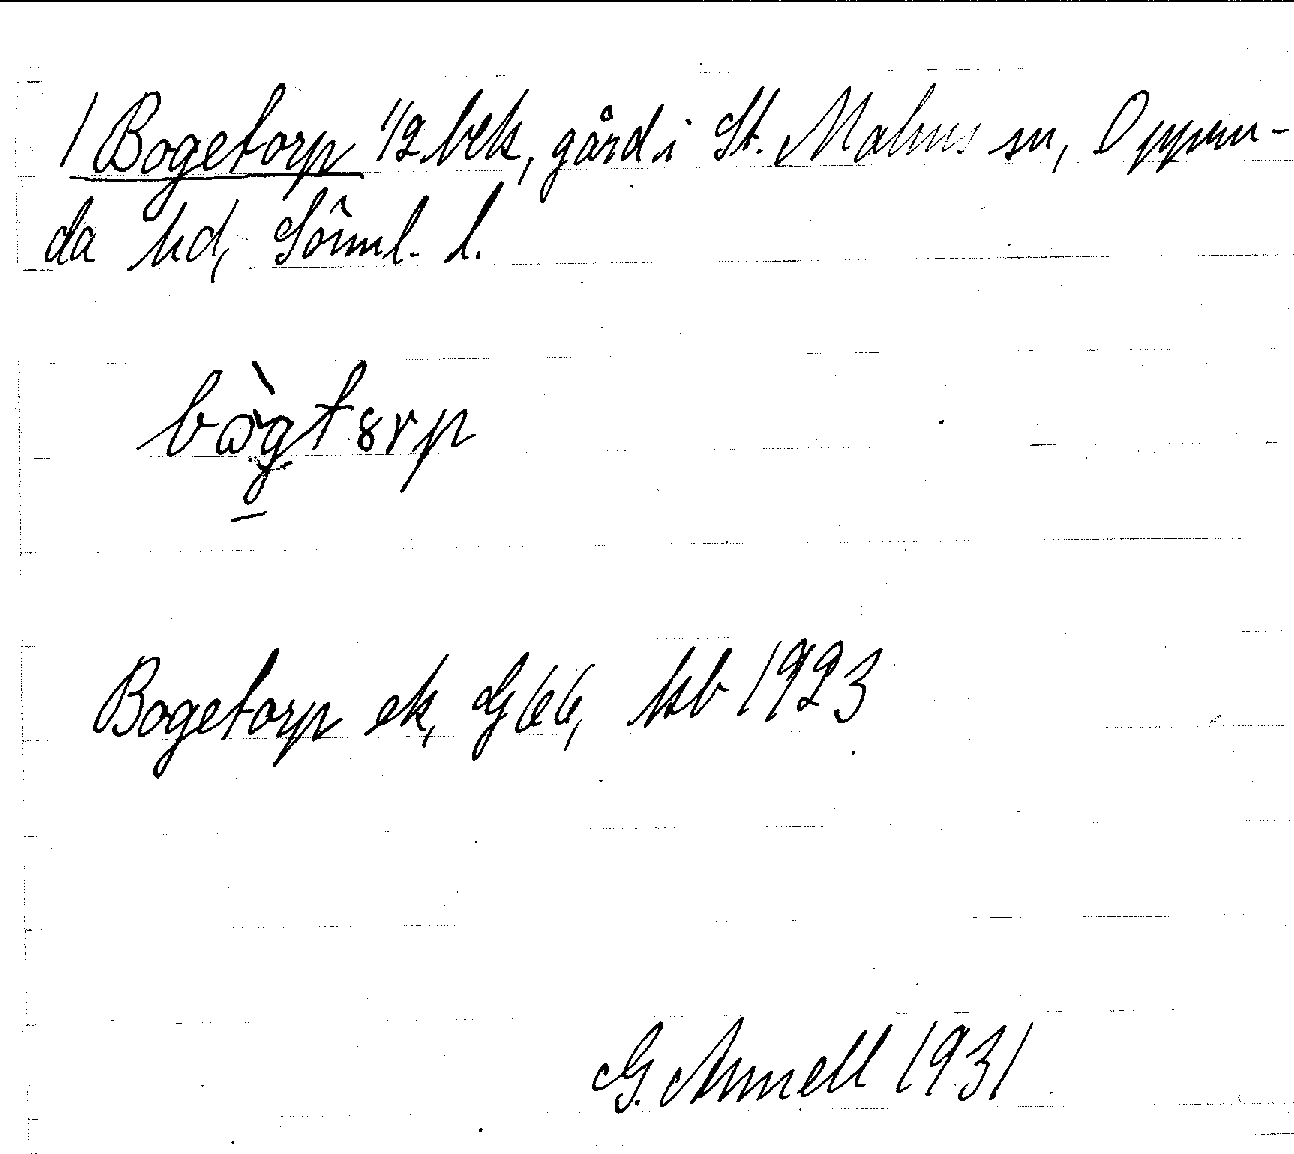 1 Bogetorp 1/2 bek, gård i St. Malms sn, Oppun-
da hd, Sörml. l.
bògtorp
Bogetorp ek, G66, kb 1923
G. Armell 1931